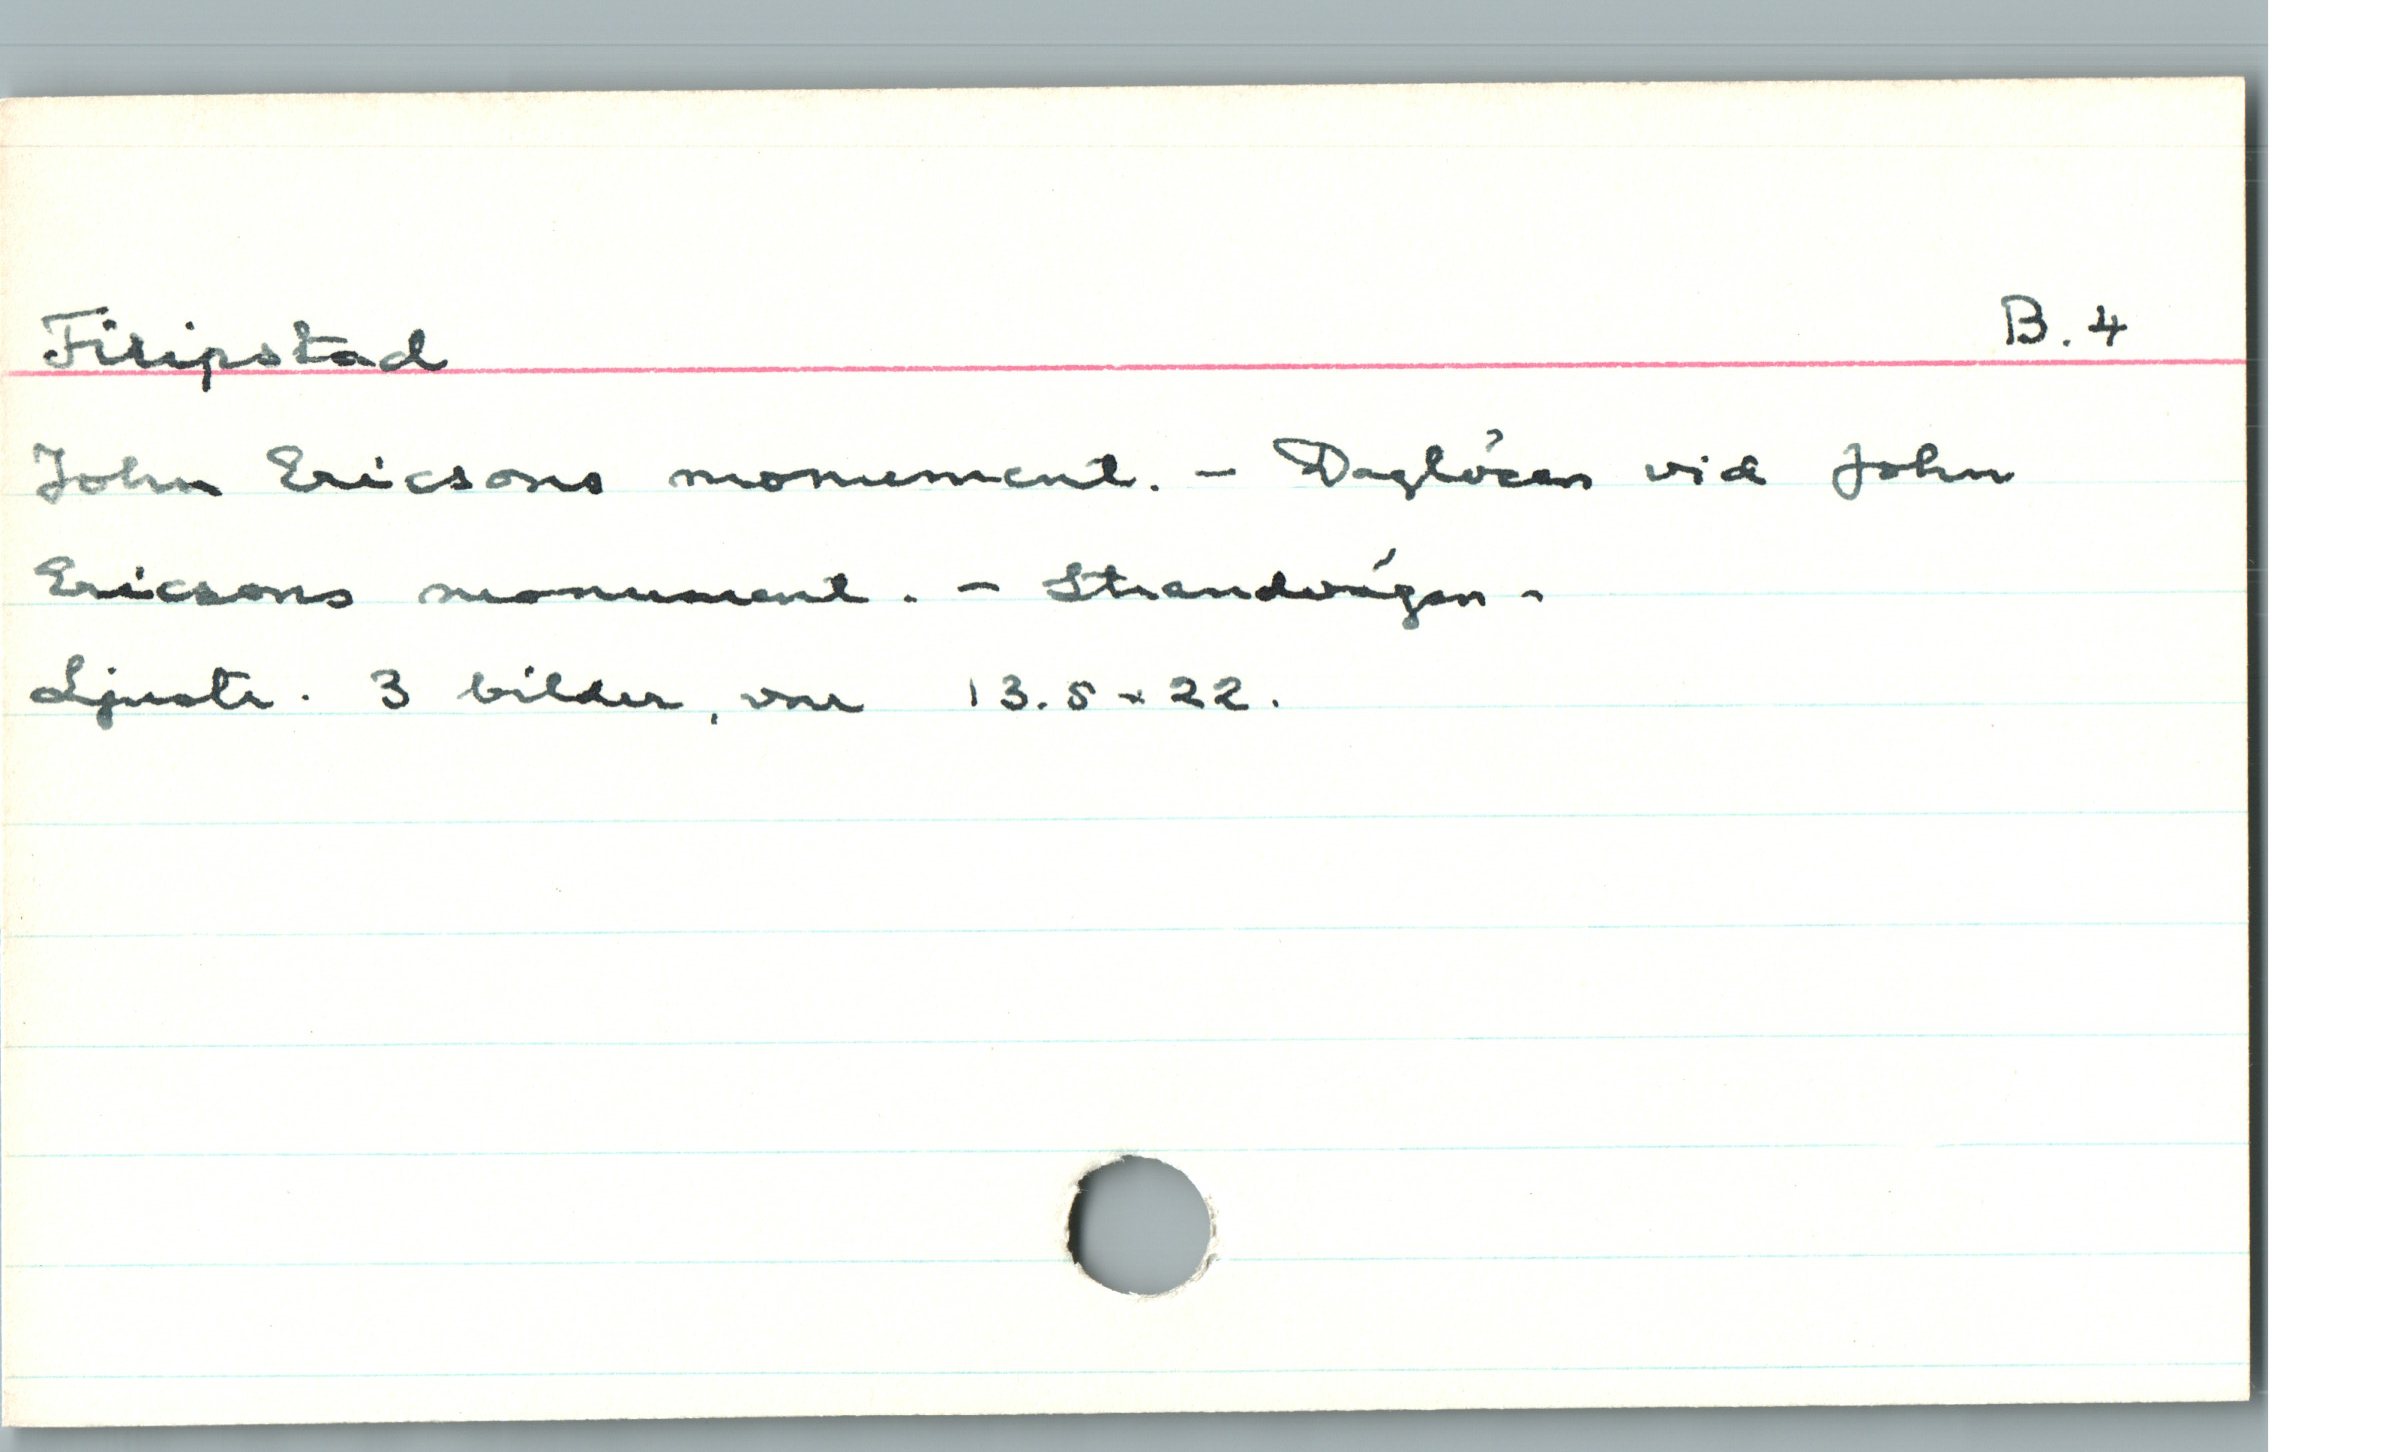 Filipstad B.4
John Ericsons monument. – Daglösen vid John
Ericsons monument. – Strandvägen –
Ljustr. 3 bilder, var 13.5 x 22.